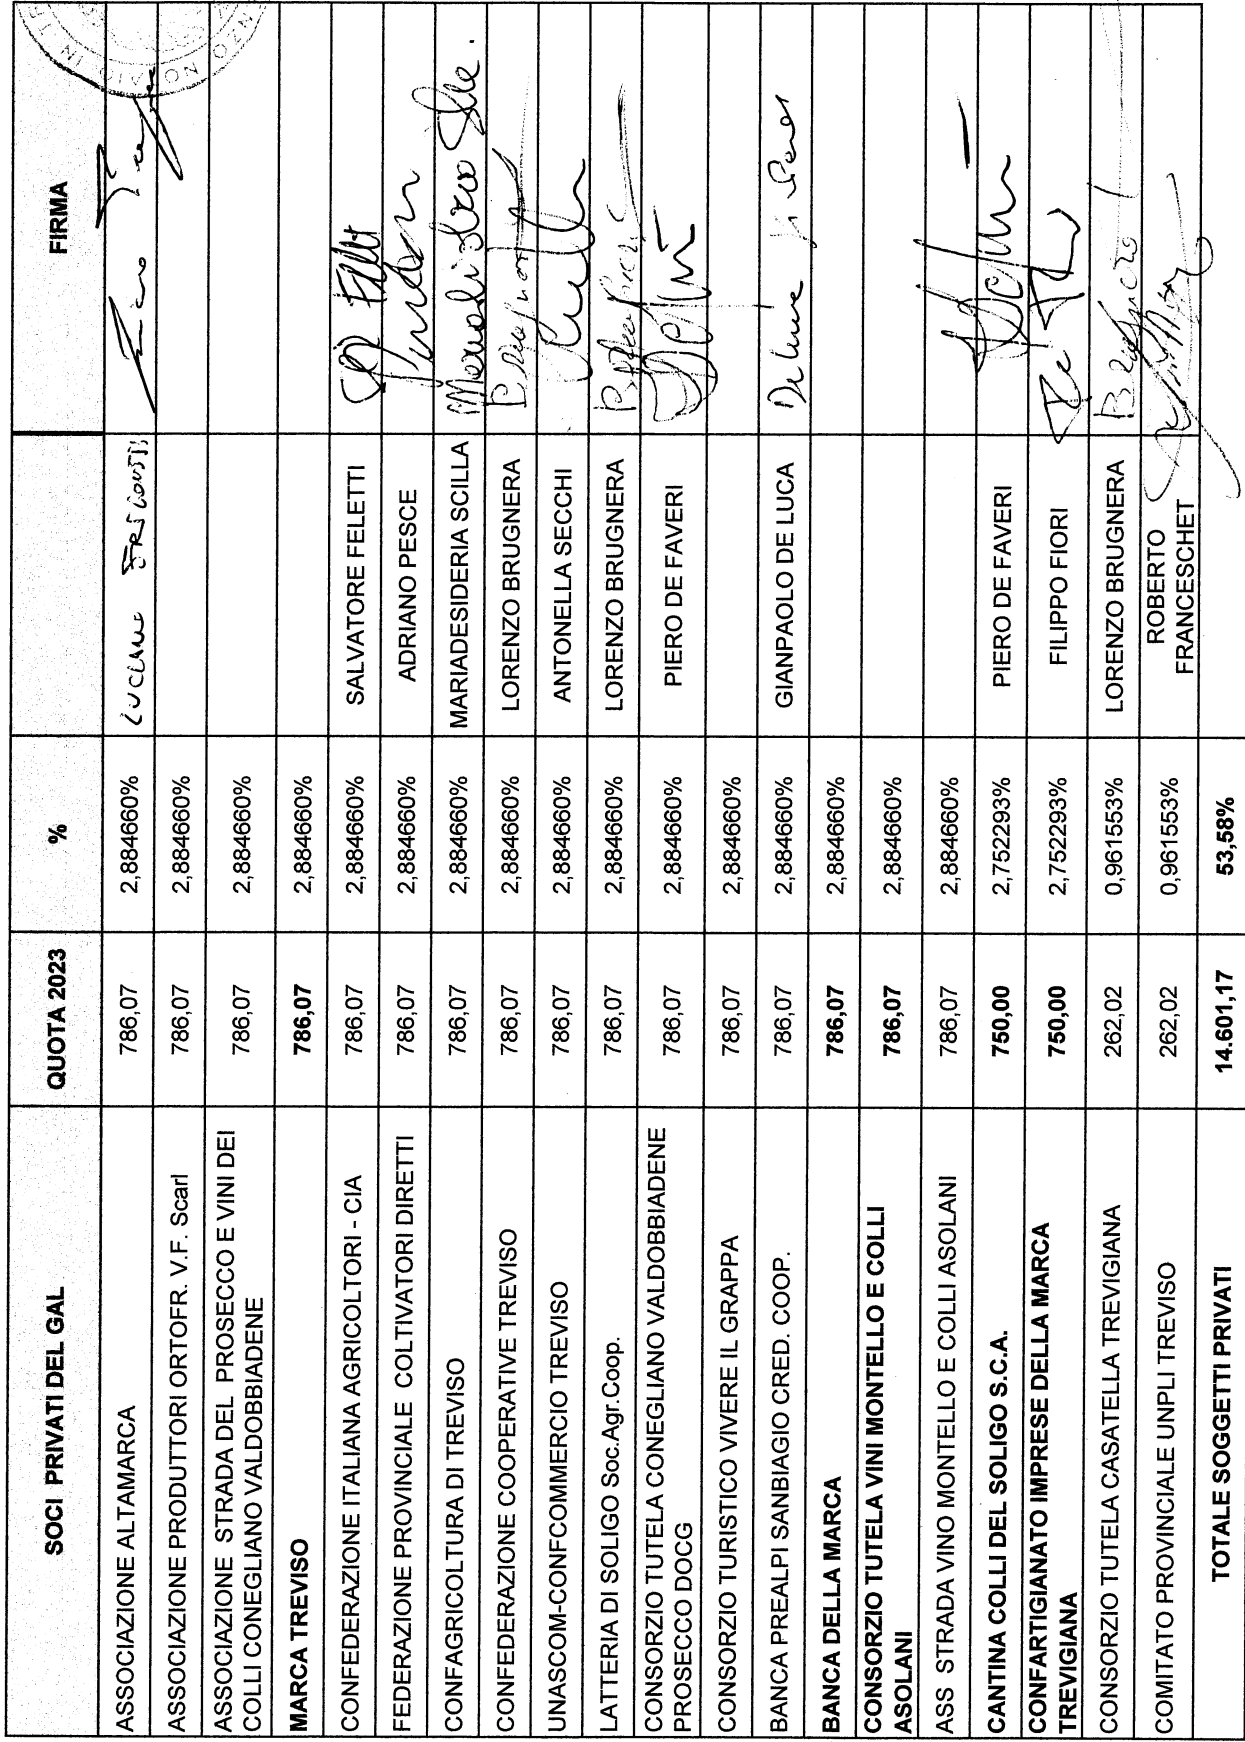 SOCI PRIVATI DEL GAL QUOTA 2023 % FIRMA
ASSOCIAZIONE ALTAMARCA 786,07 2,884660%
ASSOCIAZIONE PRODUTTORI ORTOFR. V.F. Scarl 786,07 2,884660%
ASSOCIAZIONE STRADA DEL PROSECCO E VINI DEI
COLLI CONEGLIANO VALDOBBIADENE 786,07 2,884660%
MARCA TREVISO 786,07 2,884660%
CONFEDERAZIONE ITALIANA AGRICOLTORI - CIA 786,07 2,884660% SALVATORE FELETTI
FEDERAZIONE PROVINCIALE COLTIVATORI DIRETTI 786,07 2,884660% ADRIANO PESCE
CONFAGRICOLTURA DI TREVISO 786,07 2,884660% MARIADESIDERIA SCILLA
CONFEDERAZIONE COOPERATIVE TREVISO 786,07 2,884660% LORENZO BRUGNERA
UNASCOM-CONFCOMMERCIO TREVISO 786,07 2,884660% ANTONELLA SECCHI
LATTERIA DI SOLIGO Soc.Agr.Coop. 786,07 2,884660% LORENZO BRUGNERA
CONSORZIO TUTELA CONEGLIANO VALDOBBIADENE
PROSECCO DOCG 786,07 2,884660% PIERO DE FAVERI
CONSORZIO TURISTICO VIVERE IL GRAPPA 786,07 2,884660%
BANCA PREALPI SANBIAGIO CRED. COOP. 786,07 2,884660% GIANPAOLO DE LUCA
BANCA DELLA MARCA 786,07 2,884660%
CONSORZIO TUTELA VINI MONTELLO E COLLI
ASOLANI 786,07 2,884660%
ASS STRADA VINO MONTELLO E COLLI ASOLANI 786,07 2,884660%
CANTINA COLLI DEL SOLIGO S.C.A. 750,00 2,752293% PIERO DE FAVERI
CONFARTIGIANATO IMPRESE DELLA MARCA
TREVIGIANA 750,00 2,752293% FILIPPO FIORI
CONSORZIO TUTELA CASATELLA TREVIGIANA 262,02 0,961553% LORENZO BRUGNERA
COMITATO PROVINCIALE UNPLI TREVISO 262,02 0,961553% ROBERTO
FRANCESCHET
TOTALE SOGGETTI PRIVATI 14.601,17 53,58%